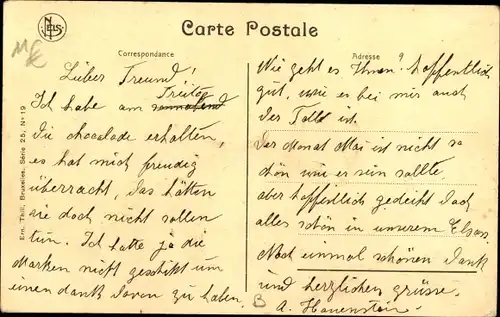 NELS
Carte Postale
Correspondance
Adresse
Ern. Thill, Bruxelles, Série 25, No 19
Lieber Freund!
Freitag
Ich habe am sonnabend
die chocolade erhalten,
es hat mich freudig
überracht, das hätten
sie doch nicht sollen
tun. Ich hatte ja die
Marken nicht geschikt um
einen dank davon zu haben.
Wie geht es Ihnen? hoffentlich
gut, wie es bei mir auch
der Fall ist.
Der Monat Mai ist nicht so
schön wie er sein sollte
aber hoffentlich gedeiht doch
alles schön in unserem Elsass.
Noch einmal schönen Dank
und herzlichen grüsse.
A. Hauenstein
B